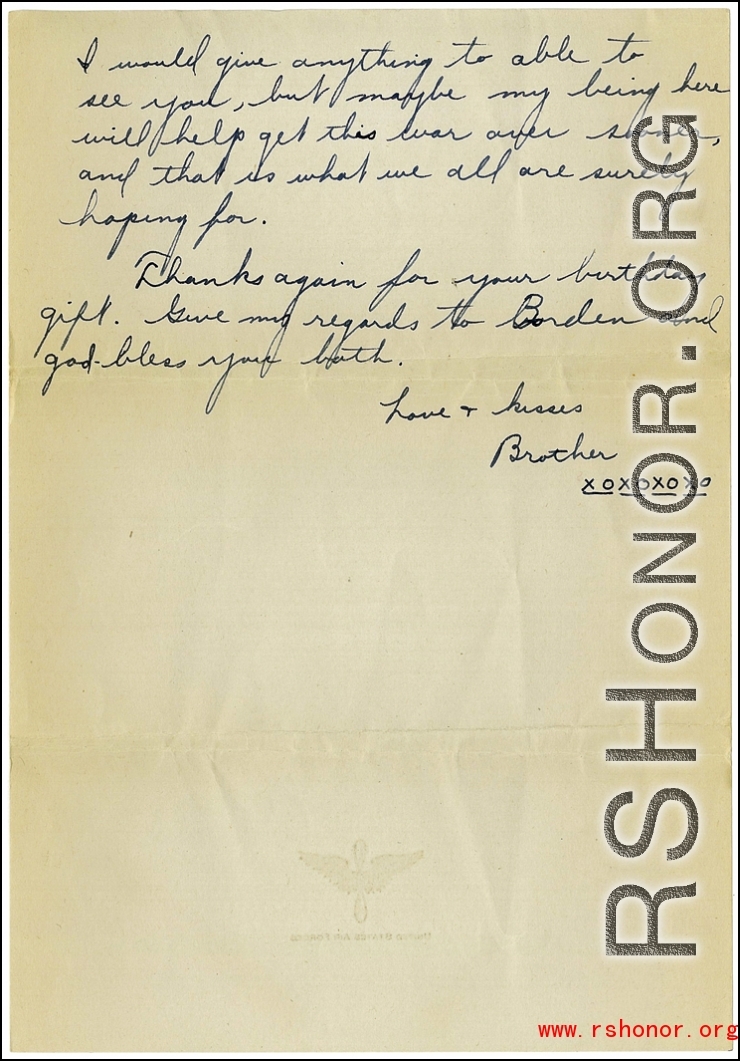 I would give anything to able to
see you, but maybe my being here
will help get this war over sooner,
and that is what we all are surely
hoping for.
Thanks again for your birthday
gift. Give my regards to Borden and
god-bless you both.
Love + kisses
Brother
xoxoxoxo
RSHONOR.ORG
UNITED STATES AIR FORCES
www.rshonor.org